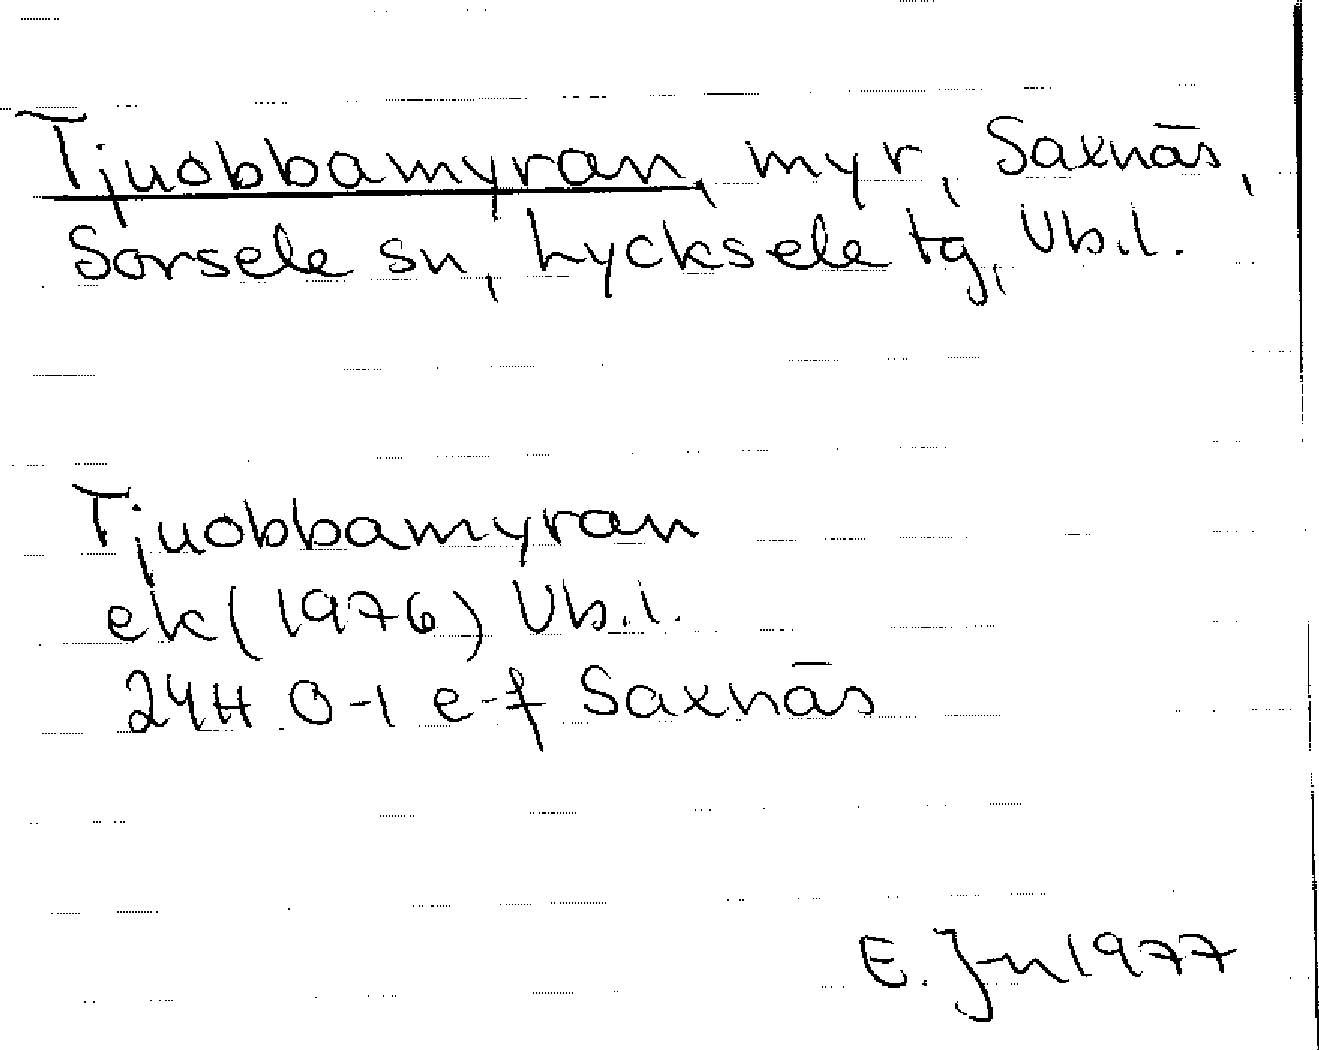 Tjuobbamyran, myr, Saxnäs,
Sorsele sn, Lycksele tg, Vb.l.
Tjuobbamyran
ek (1976) Vb.l.
24H 0-1 e-f Saxnäs
E. J-n 1977